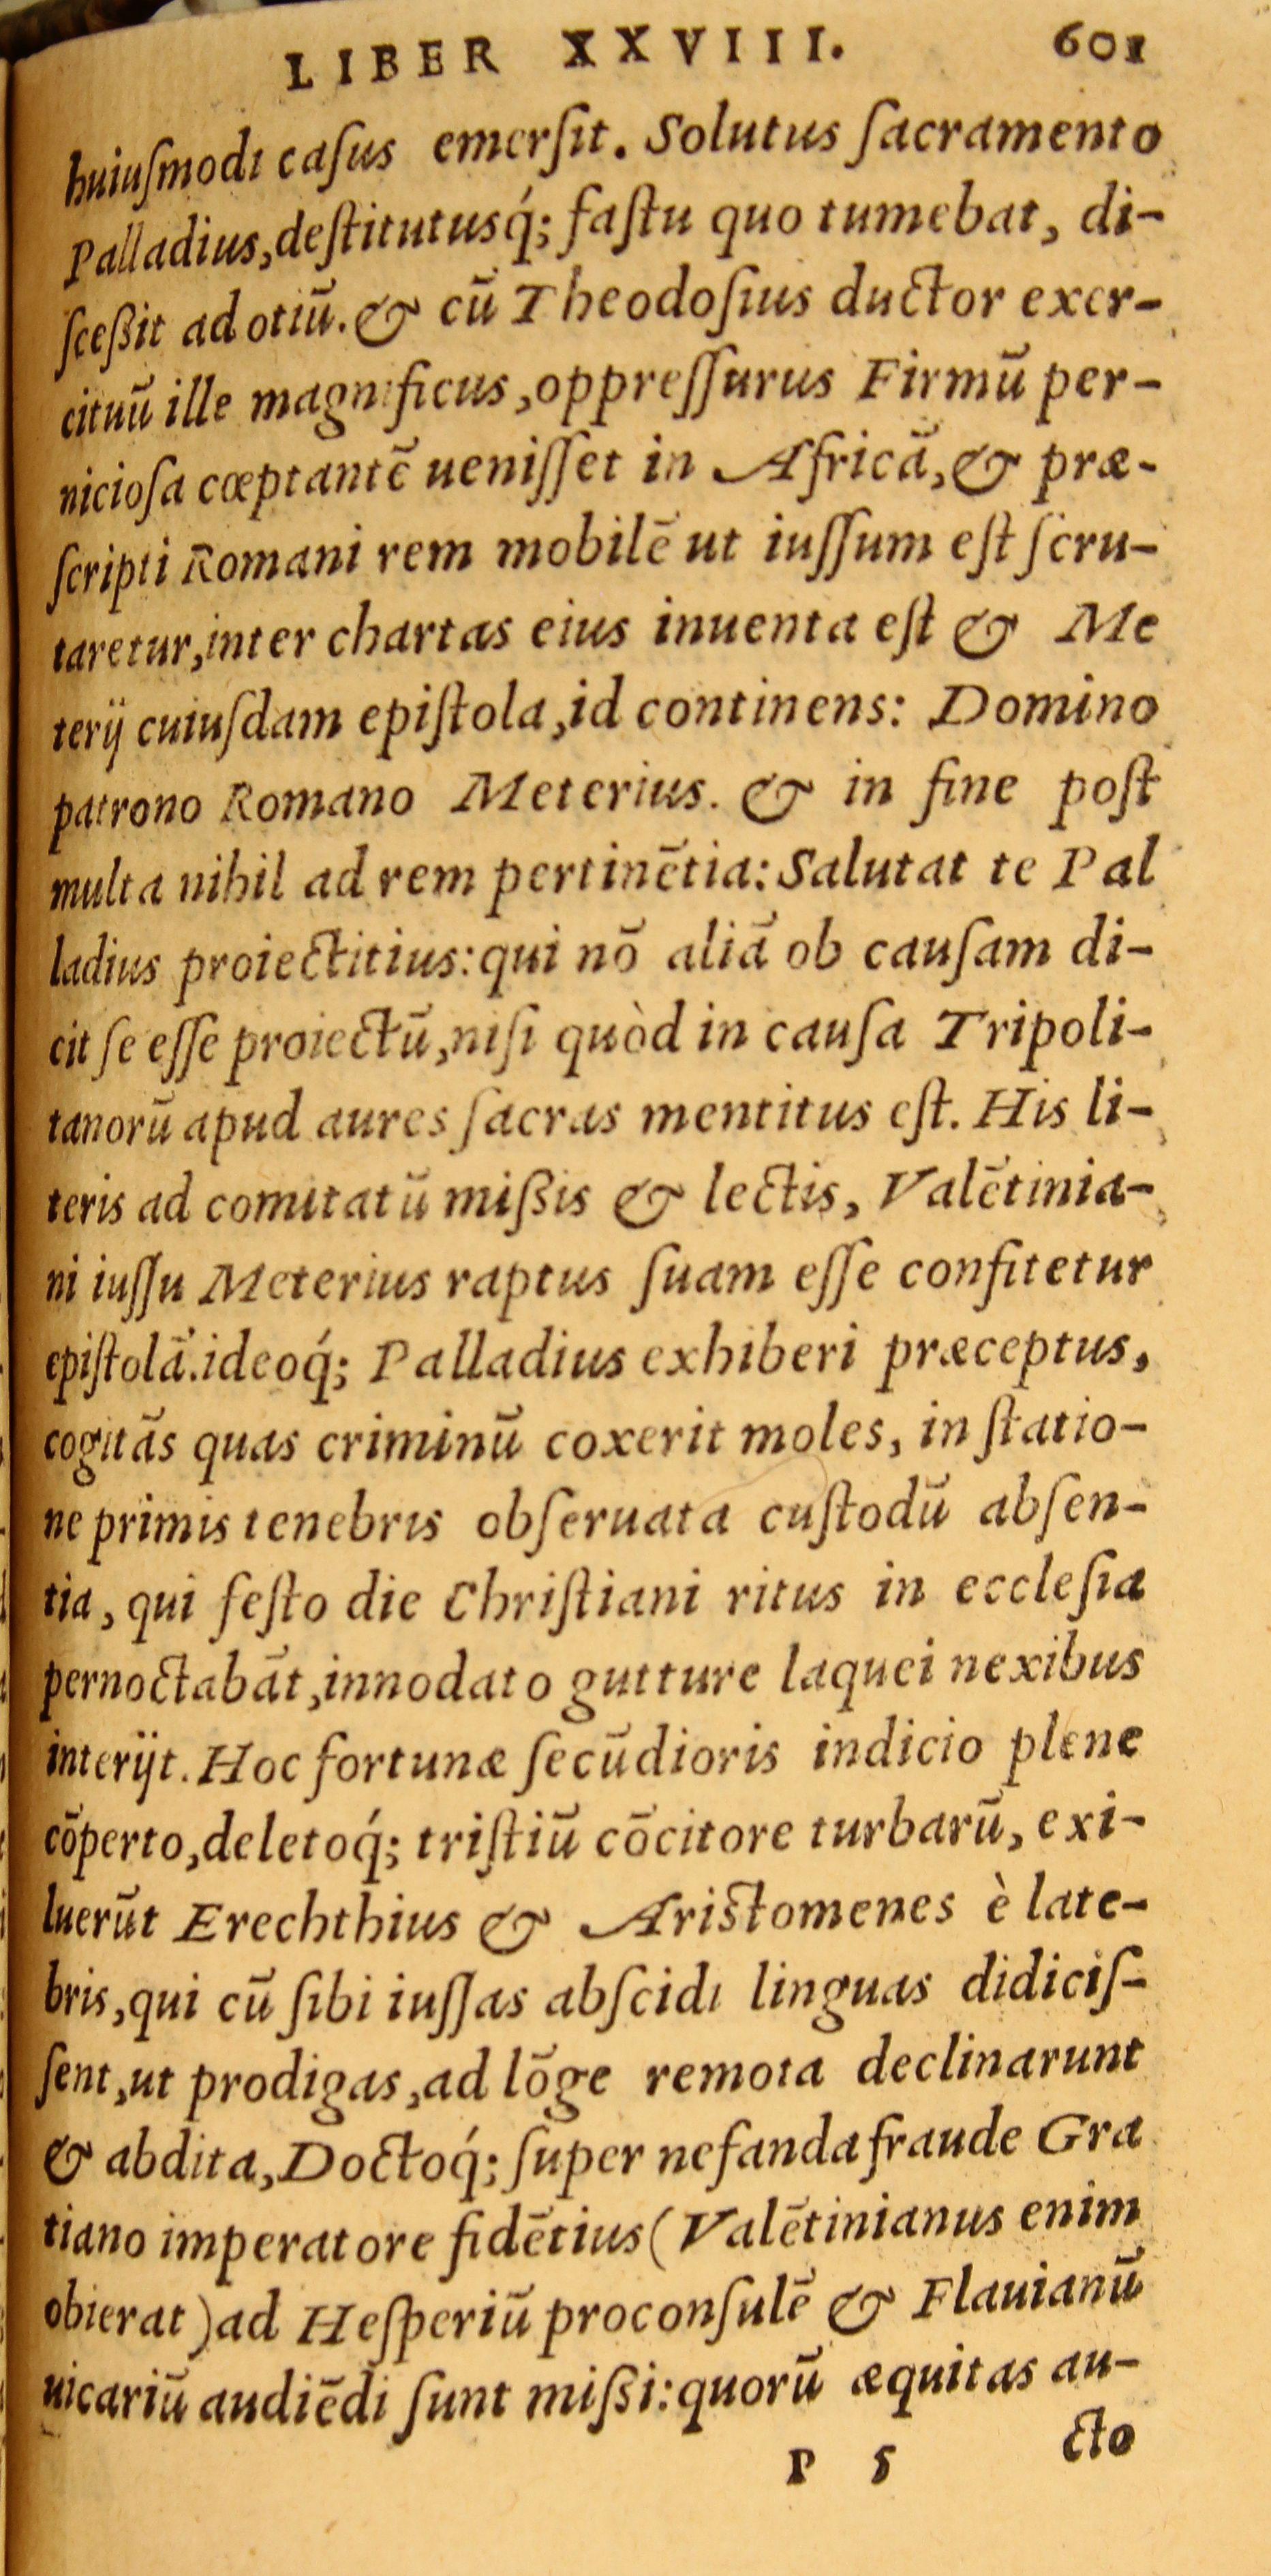 LIBER XXVIII. 601
huiuſmodi caſus emerſit. Solutus ſacramento
Palladius, deſtitutusq́; faſtu quo tumebat, di-
ſceßit ad otiū. & cū Theodoſius ductor exer-
cituū ille magnificus, oppreſſurus Firmū per-
nicioſa cœptantē ueniſſet in Africā, & præ-
ſcripti Romani rem mobilē ut iuſſum eſt ſcru-
taretur, inter chartas eius inuenta eſt & Me
terij cuiuſdam epiſtola, id continens: Domino
patrono Romano Meterius. & in fine poſt
multa nihil ad rem pertinētia: Salutat te Pal
ladius proiectitius: qui nō aliā ob cauſam di-
cit ſe eſſe proiectū, niſi quòd in cauſa Tripoli-
tanorū apud aures ſacras mentitus eſt. His li-
teris ad comitatū mißis & lectis, Valētinia-
ni iuſſu Meterius raptus ſuam eſſe confitetur
epiſtolā. ideoq́; Palladius exhiberi præceptus,
cogitās quas criminū coxerit moles, in ſtatio-
ne primis tenebris obſeruata cuſtodū abſen-
tia, qui feſto die Chriſtiani ritus in eccleſia
pernoctabāt, innodato gutture laquei nexibus
interijt. Hoc fortunæ ſecūdioris indicio plene
cōperto, deletoq́; triſtiū cōcitore turbarū, exi-
luerūt Erechthius & Ariſtomenes è late-
bris, qui cū ſibi iuſſas abſcidi linguas didiciſ-
ſent, ut prodigas, ad lōge remota declinarunt
& abdita, Doctoq́; ſuper nefanda fraude Gra
tiano imperatore fidētius (Valētinianus enim
obierat) ad Heſperiū proconſulē & Flauianū
uicariū audiēdi ſunt mißi: quorū æquitas au-
P 5 cto